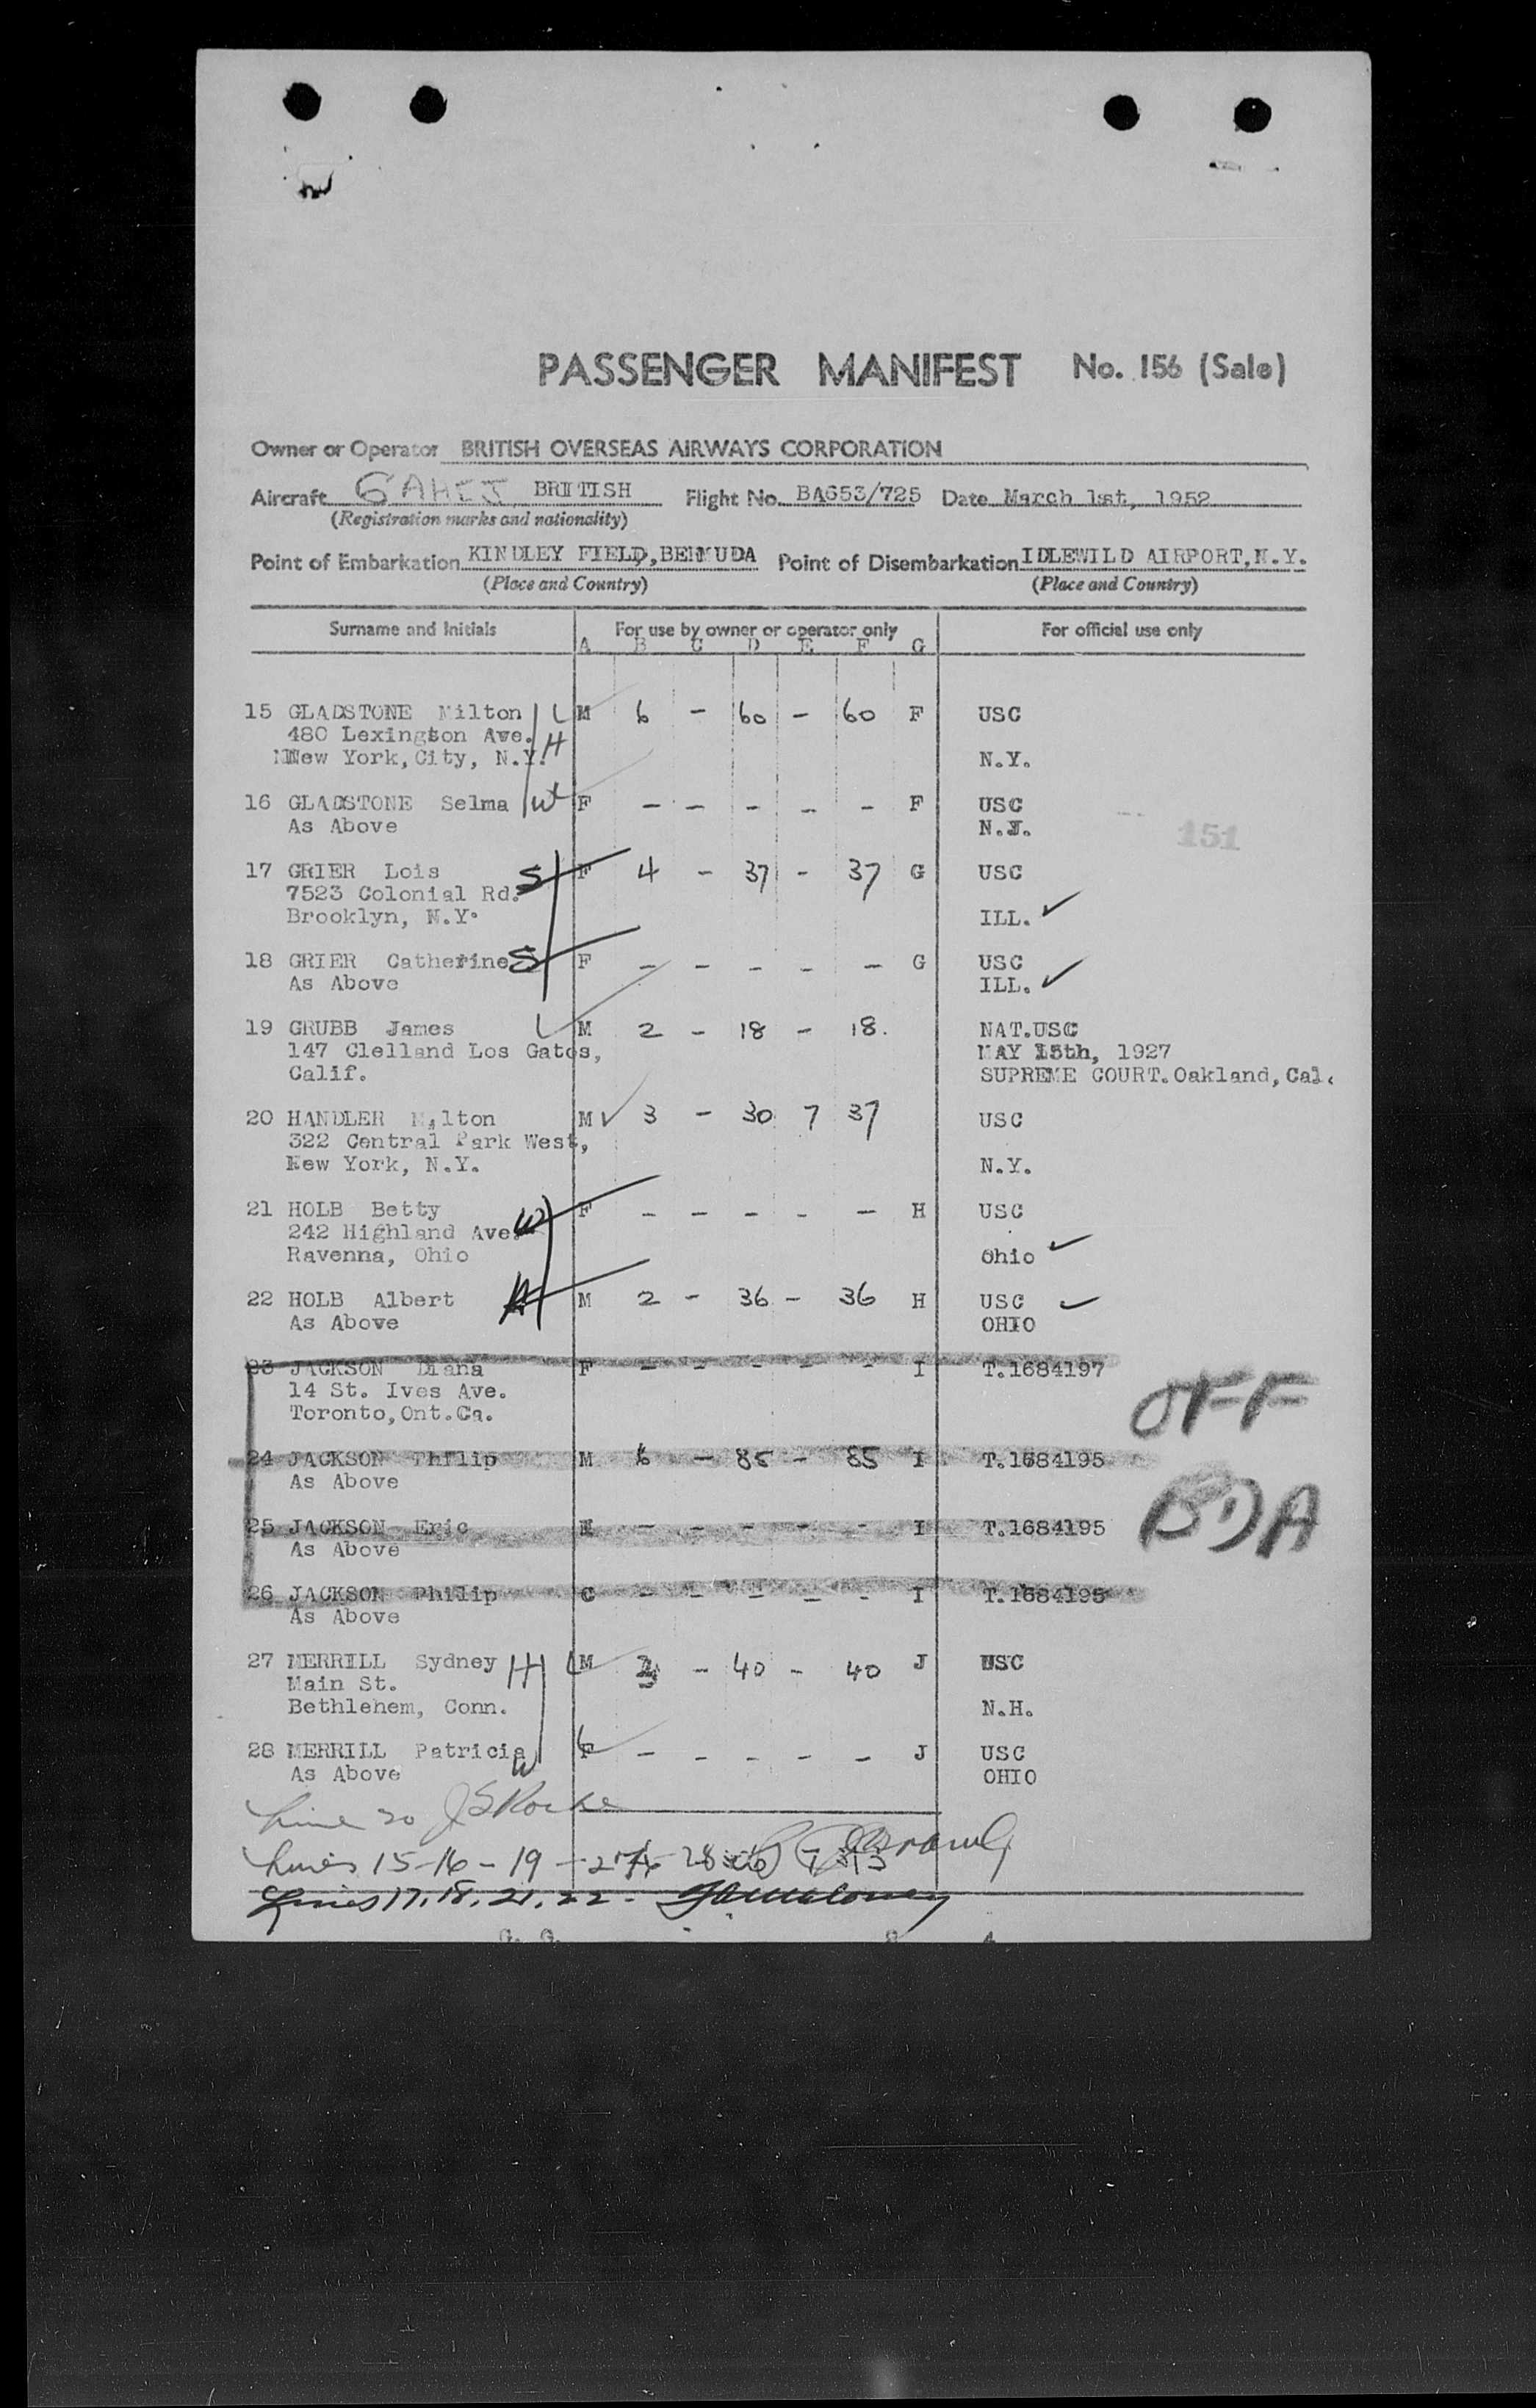 PASSENGER MANIFEST No. 156 (Sale)
Owner or Operator BRITISH OVERSEAS AIRWAYS CORPORATION
Aircraft BRITISH Flight No. BA653/725 Date March 1st, 1952
(Registration marks and nationality)
Point of Embarkation KINDLEY FIELD, BERMUDA Point of Disembarkation IDLEWILD AIRPORT, N.Y.
(Place and Country) (Place and Country)
Surname and Initials For use by owner or operator only For official use only
A B C D E F G
15 GLADSTONE Milton L M 6 - 60 - 60 F USC
480 Lexington Ave. H
New York, City, N.Y. N.Y.
16 GLADSTONE Selma W F - - - - - F USC
As Above N.J.
151
17 GRIER Lois S F 4 - 37 - 37 G USC
7523 Colonial Rd.
Brooklyn, N.Y. ILL. ✓
18 GRIER Catherine S F - - - - - G USC
As Above ILL. ✓
19 GRUBB James M 2 - 18 - 18. NAT.USC
147 Clelland Los Gatos, MAY 15th, 1927
Calif. SUPREME COURT. Oakland, Cal.
20 HANDLER Milton M ✓ 3 - 30 7 37 USC
322 Central Park West,
New York, N.Y. N.Y.
21 HOLB Betty W F - - - - - H USC
242 Highland Ave.
Ravenna, Ohio Ohio ✓
22 HOLB Albert H M 2 - 36 - 36 H USC ✓
As Above OHIO
23 JACKSON Diana F - - - - - I T.1684197
14 St. Ives Ave.
Toronto, Ont. Ca. OFF
24 JACKSON Philip M 6 - 85 - 85 I T.1684195
As Above
25 JACKSON Eric - - - - - I T.1684195
As Above BDA
26 JACKSON Philip C - - - - - I T.1684195
As Above
27 MERRILL Sydney H M 3 - 40 - 40 J USC
Main St.
Bethlehem, Conn. N.H.
28 MERRILL Patricia W F - - - - - J USC
As Above OHIO
Line 20
Lines 15-16-19-27 28
Lines 17, 18, 21, 22.